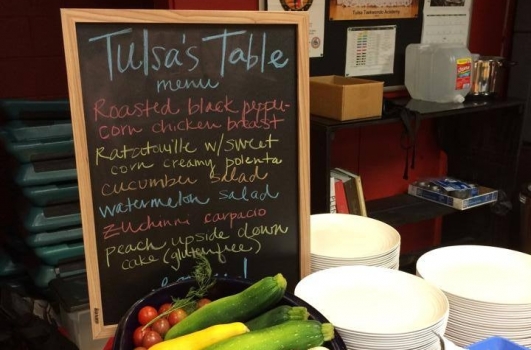 Tulsa's Table
menu
Roasted black pepper-
corn chicken breast
Ratatouille w/sweet
corn creamy polenta
cucumber salad
watermelon salad
zuchinni carpacio
peach upside down
cake (gluten free)